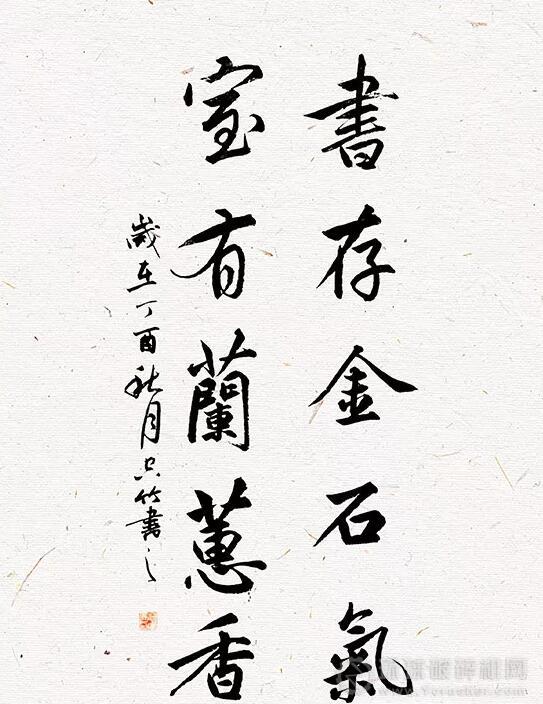 書存金石氣
室有蘭蕙香
歲在丁酉秋月只竹書之
破碎机网